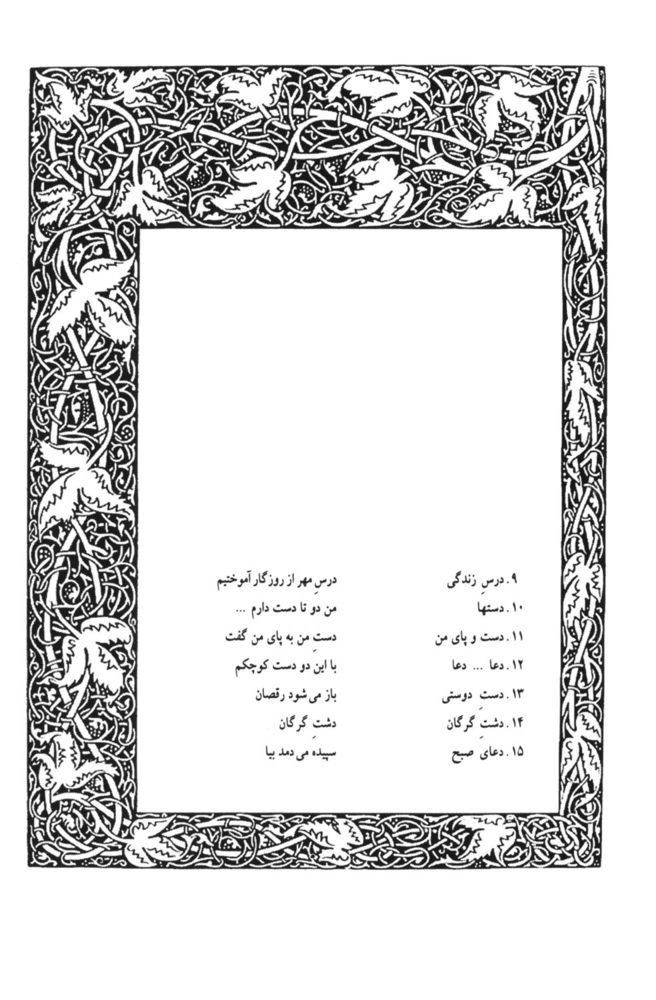 ۹. درسِ زندگی درسِ مهر از روزگار آموختیم
۱۰. دستها من دو تا دست دارم ...
۱۱. دست و پای من دستِ من به پای من گفت
۱۲. دعا ... دعا با این دو دست کوچکم
۱۳. دستِ دوستی باز می‌شود رقصان
۱۴. دشتِ گرگان دشتِ گرگان
۱۵. دعای صبح سپیده می‌دمد بیا